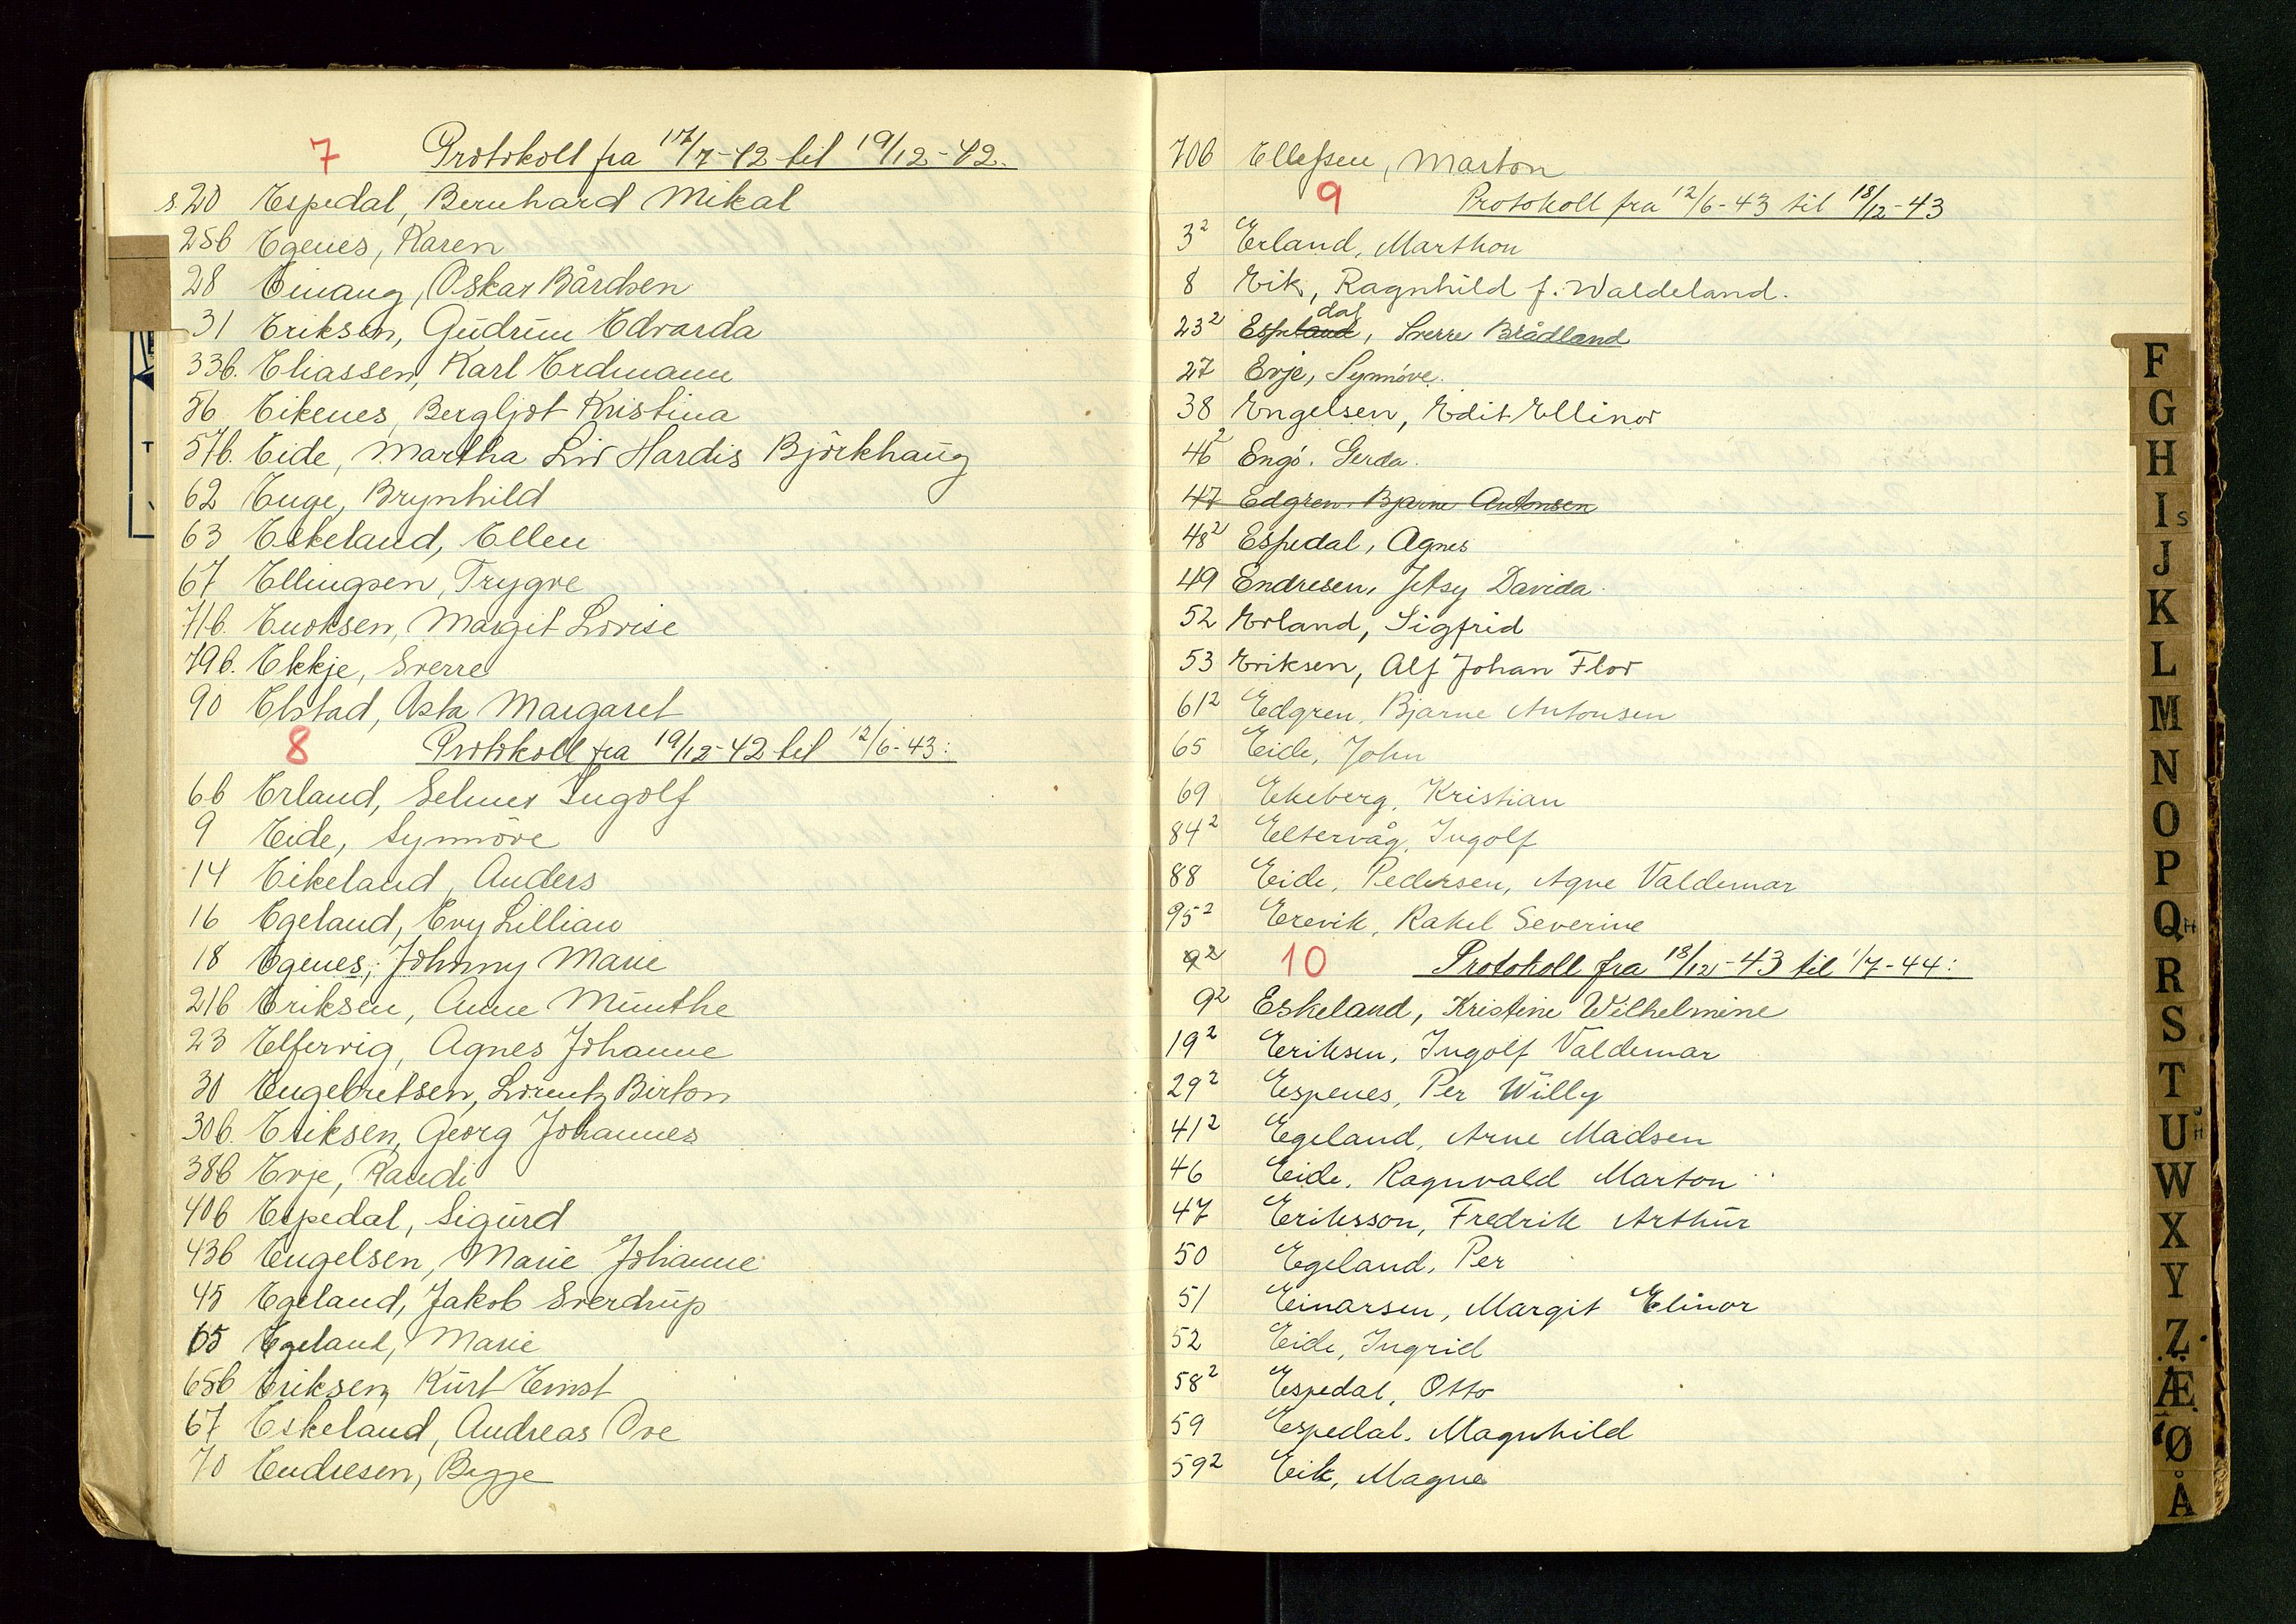 7 Protokoll fra 17/7-42 til 19/12-42.
s. 20 Espedal, Bernhard Mikal
25b Egenes, Karen
28 Einang, Oskar Bårdsen
31 Eriksen, Gudrun Edvarda
33b. Eliassen, Karl Erdmann
56 Eikenes, Bergljot Kristina
57b. Eide, Martha Liv Hardis Björkhaug
62 Enge, Brynhild
63 Eskeland, Ellen
67 Ellingsen, Trygve
71b. Enoksen, Margit Lovise
79b. Ekkje, Sverre
90 Elstad, Asta Margaret
8 Protokoll fra 19/12-42 til 12/6-43:
6b Erland, Selmer Ingolf
9 Eide, Synnöve
14 Eikeland, Anders
16 Egeland, Evy Lillian
18 Egenes, Johnny Marie
21b Eriksen, Anne Munthe
23 Elfervig, Agnes Johanne
30 Engebretsen, Lorentz Birton
30b. Eriksen, Georg Johannes
38b Evje, Randi
40b Espedal, Sigurd
43b Engelsen, Marie Johanne
45 Egeland, Jakob Sverdrup
65 Egeland, Marie
65b Eriksen, Kurt Ernst
67 Eskeland, Andreas Ove
70 Endresen, Bigge
70b Ellefsen, Marton
9 Protokoll fra 12/6-43 til 18/12-43
3² Erland, Marthon
8 Eik, Ragnhild f. Waldeland.
dal
23² Espeland, Sverre Brådland
27 Evje, Synnöve.
38 Engelsen, Edit Ellinor
46² Engö. Gerda.
47 Edgren. Bjarne Antonsen
48² Espedal, Agnes
49 Endresen, Jetsy Davida.
52 Erland, Sigfrid
53 Eriksen, Alf Johan Flor
61² Edgren, Bjarne Antonsen
65 Eide, John
69 Ekeberg, Kristian
84² Eltervåg, Ingolf
88 Eide, Pedersen, Agne Valdemar
95² Erevik, Rakel Severine
9² 10 Protokoll fra 18/12-43 til 1/7-44:
9² Eskeland, Kristine Wilhelmine
19² Eriksen, Ingolf Valdemar
29² Espenes, Per Willy
41² Egeland, Arne Madsen
46 Eide, Ragnvald Marton
47 Eriksson, Fredrik Arthur
50 Egeland, Per
51 Einarsen, Margit Elinor
52 Eide, Ingrid
58² Espedal, Otto
59 Espedal. Magnhild
59² Eik, Magne
F
G
H
I S
J
K
L
M
N
O
P
Q
R
S
T
U
W
X
Y
Z
Æ
Ø
Å
T